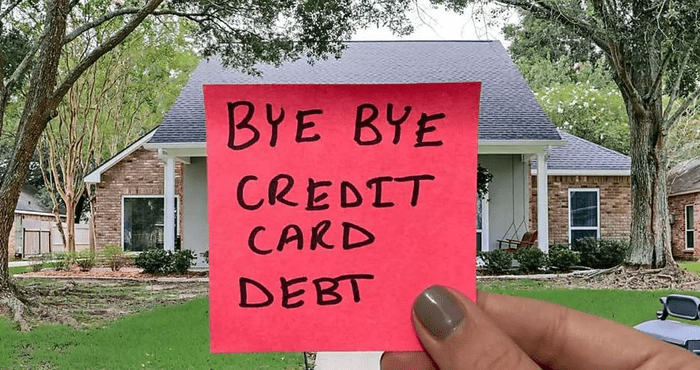 BYE BYE
CREDIT
CARD
DEBT